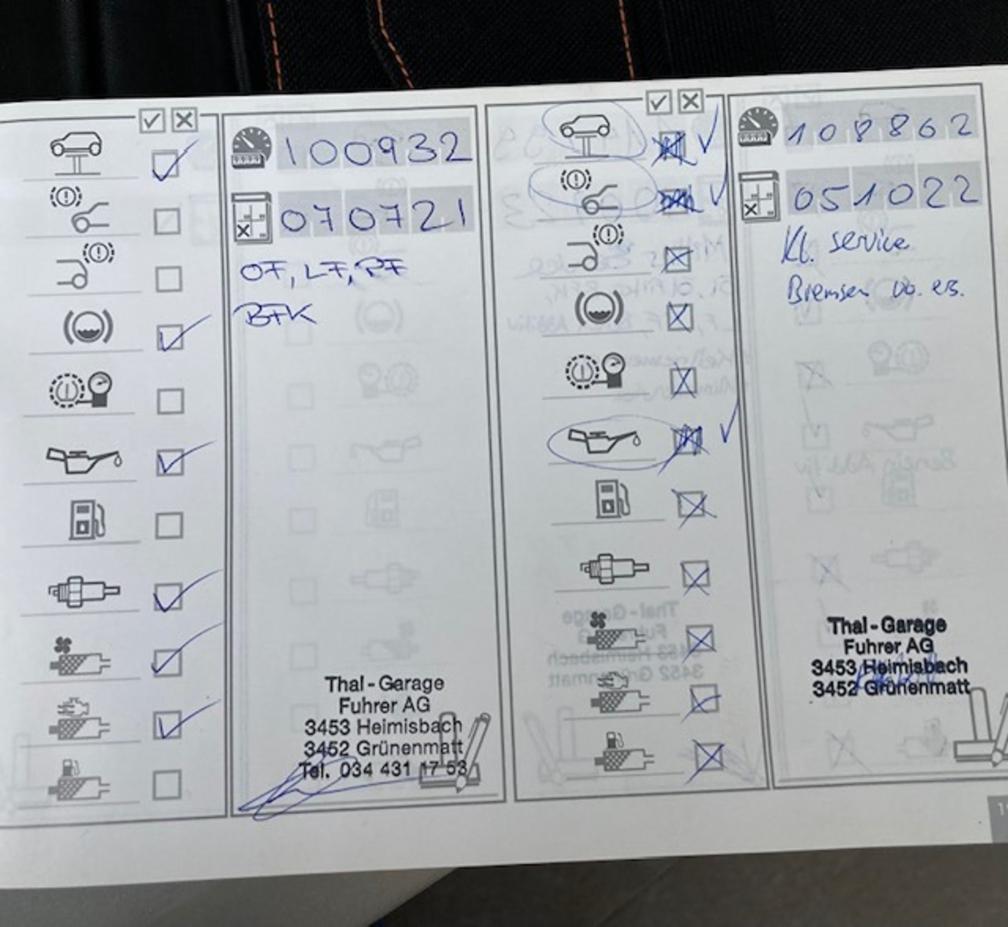 100932
070721
OF, LF, PF
BFK
Thal-Garage
Fuhrer AG
3453 Heimisbach
3452 Grünenmatt
Tel. 034 431 17 53
108862
051022
Kl. service
Bremsen
Thal-Garage
Fuhrer AG
3453 Heimisbach
3452 Grünenmatt